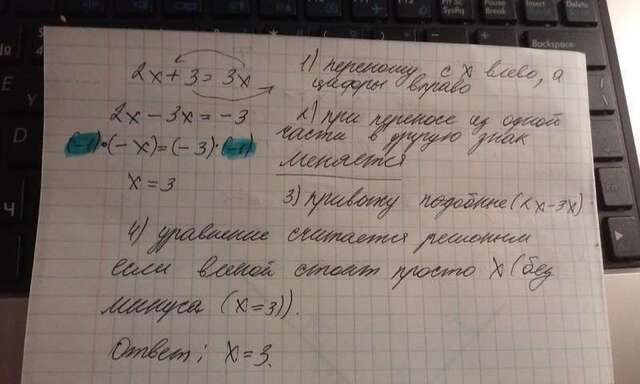 2x + 3 = 3x
2x - 3x = -3
(-1)·(-x)=(-3)·(-1)
x = 3
1) переношу с x влево, а
цифры вправо
2) при переносе из одной
части в другую знак
меняется
3) привожу подобные (2x-3x)
4) уравнение считается решонным
если вленой стоит просто x (без
минуса (x=3)).
Ответ: x=3.
Backspace
Insert
Delete
PrtSc
SysRq
Pause
Break